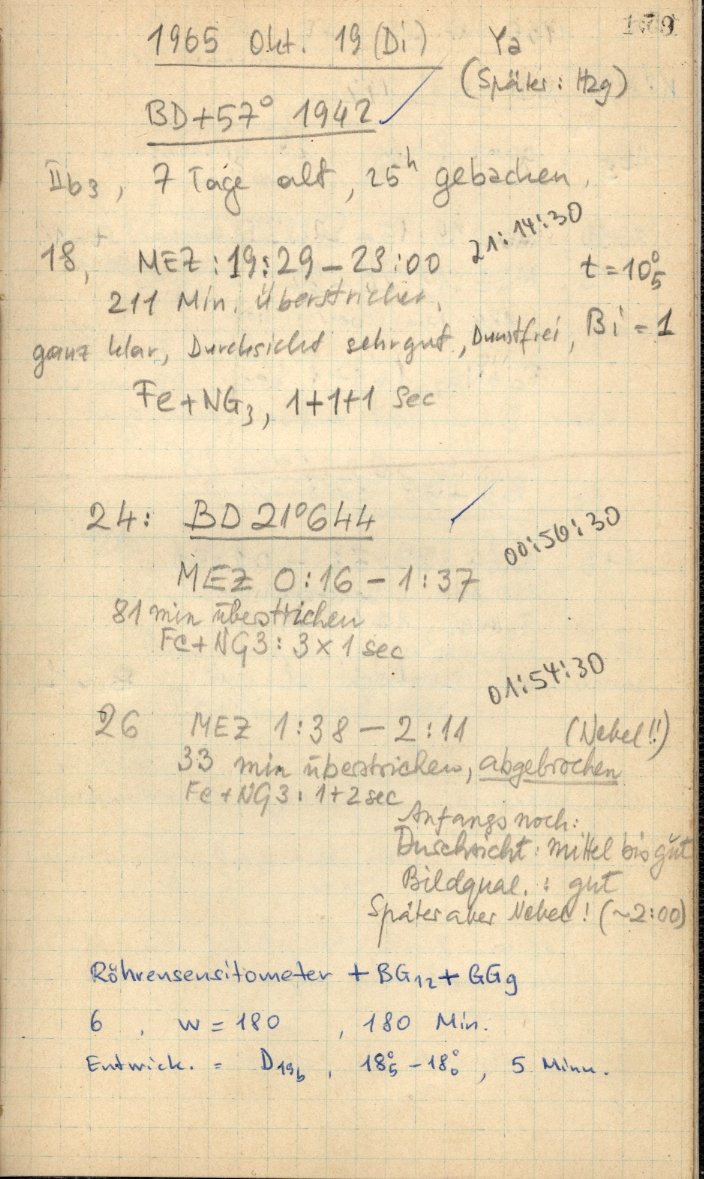 159
1965 Okt. 19 (Di) Ya
(Später: Hzg)
BD+57° 1942 ✓
IIb3, 7 Tage alt, 25h gebacken.
18, MEZ: 19:29 – 23:00 21:14:30 t = 10°5
211 Min. überstrichen.
ganz klar, Durchsicht sehr gut, Dunstfrei, Bi = 1
Fe + NG3, 1+1+1 Sec
24: BD 21°644 ✓
00:56:30
MEZ 0:16 – 1:37
81 min überstrichen
Fe + NG3: 3 x 1 sec
01:54:30
26 MEZ 1:38 – 2:11 (Nebel!!)
33 min überstrichen, abgebrochen
Fe + NG3: 1+2 sec
Anfangs noch:
Durchsicht: mittel bis gut
Bildqual.: gut
Später aber Nebel! (~2:00)
Röhrensensitometer + BG12 + GG9
6, w = 180, 180 Min.
Entwick. = D19b, 18°5 – 18°0, 5 Minu.